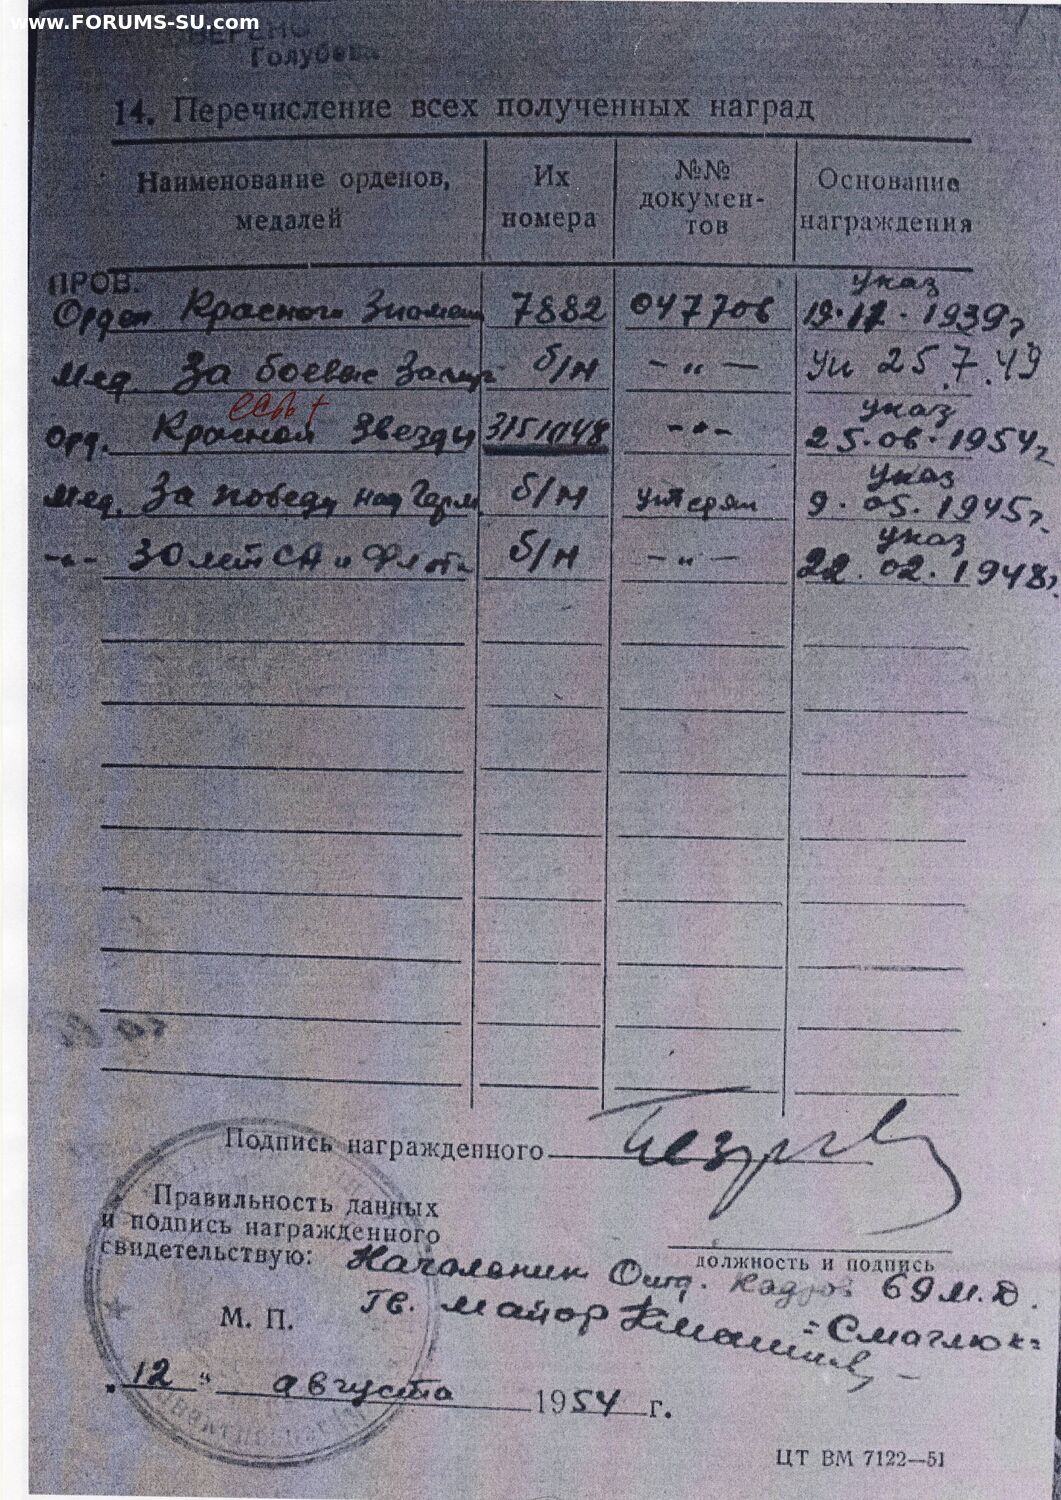 www.FORUMS-SU.com
Голубева
14. Перечисление всех полученных наград
Наименование орденов, медалей
Их номера
№№ докумен-тов
Основание награждения
ПРОВ.
Орден Красного Знамени 7882 047706 указ 19.12.1939г
Мед. За боевые Заслуг б/н —"— Ук 25.7.49
есть +
Орд. Красной Звезды 3151048 -"- указ 25.06.1954г
Мед. За победу над Герм. б/н утерян указ 9.05.1945г.
-"- 30 лет СА и Флота б/н —"— указ 22.02.1948г.
Подпись награжденного
Правильность данных
и подпись награжденного
свидетельствую:
должность и подпись
Начальник Отд. Кадров 69 М.Д.
Гв. майор =Смаглюк=
М. П.
"12" августа 1954 г.
ЦТ ВМ 7122—51